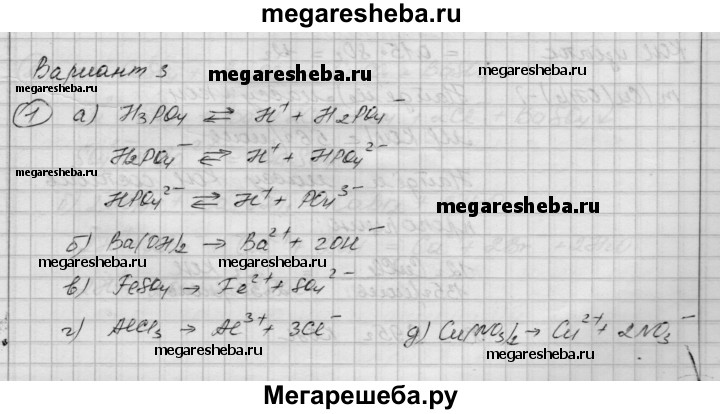 megaresheba.ru
Вариант 3
megaresheba.ru
megaresheba.ru
1 а) H₃PO₄ ⇄ H⁺ + H₂PO₄⁻
H₂PO₄⁻ ⇄ H⁺ + HPO₄²⁻
megaresheba.ru
HPO₄²⁻ ⇄ H⁺ + PO₄³⁻
megaresheba.ru
б) Ba(OH)₂ → Ba²⁺ + 2OH⁻
megaresheba.ru
megaresheba.ru
в) FeSO₄ → Fe²⁺ + SO₄²⁻
г) AlCl₃ → Al³⁺ + 3Cl⁻ д) Cu(NO₃)₂ → Cu²⁺ + 2NO₃⁻
megaresheba.ru
megaresheba.ru
megaresheba.ru
Мегарешеба.ру